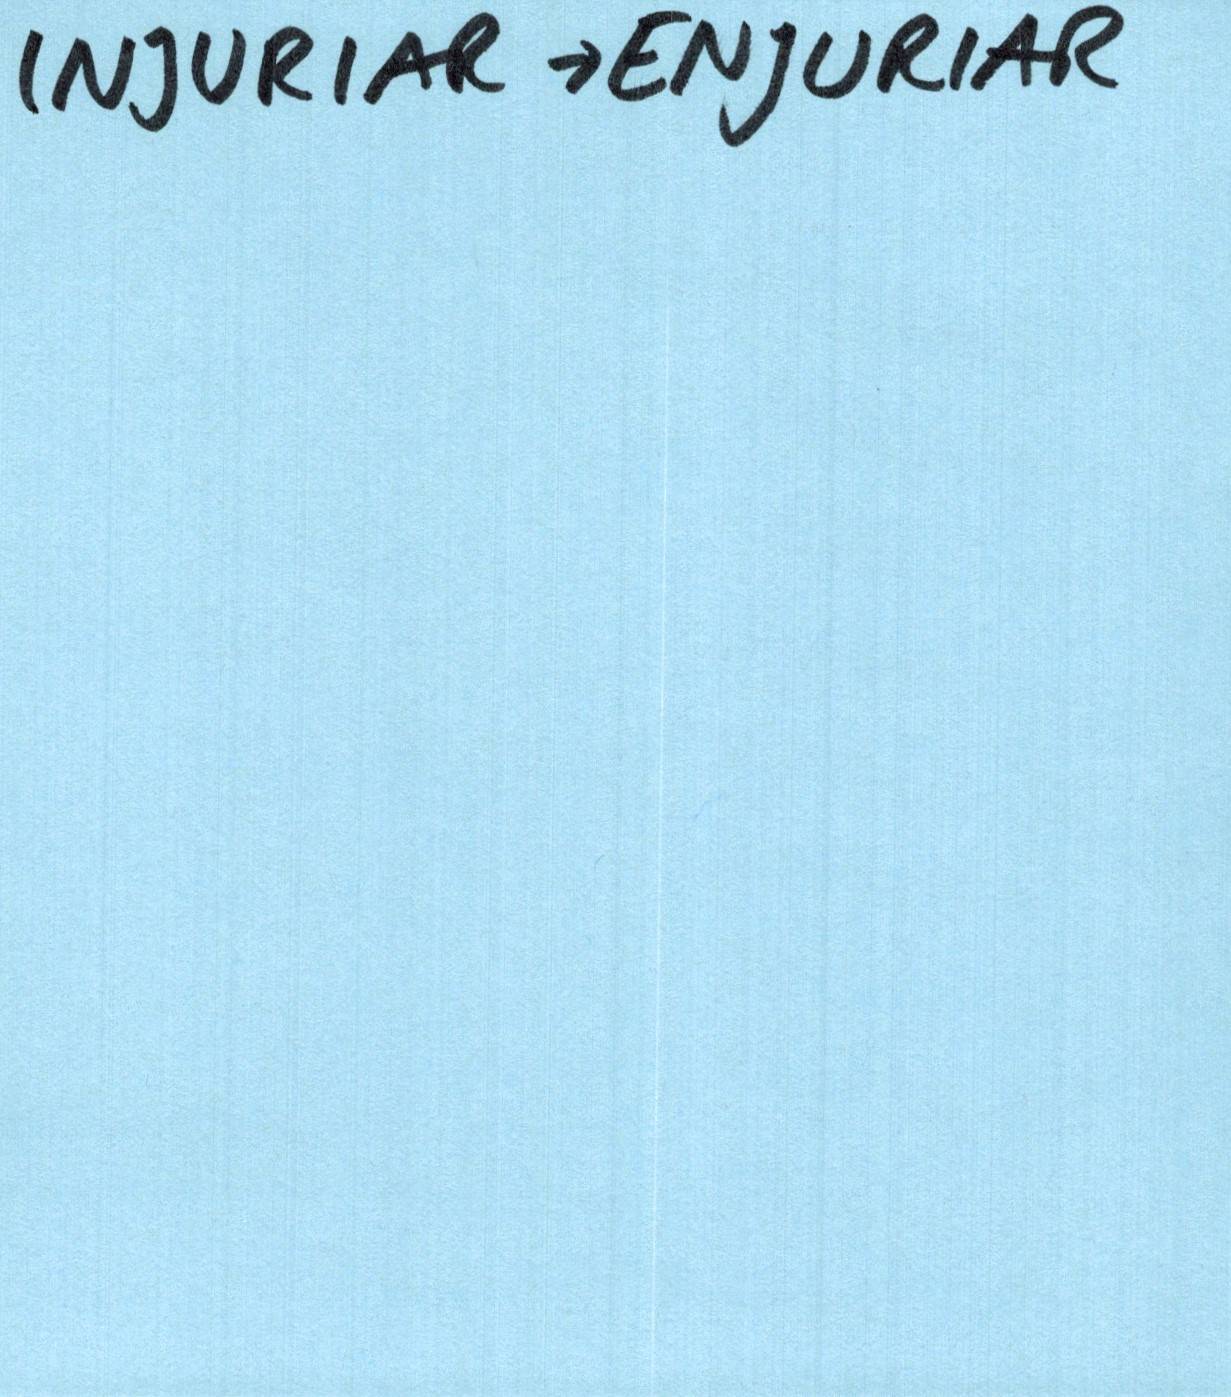 INJURIAR → ENJURIAR